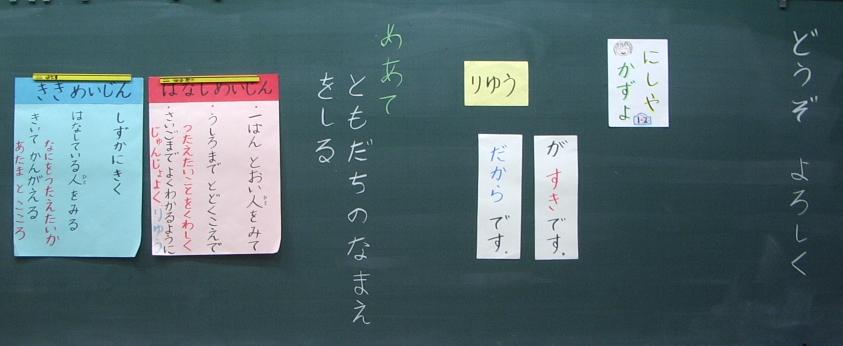 どうぞ よろしく
にしや
かずよ
1-2
りゆう
が すきです。
だから です。
めあて
ともだちのなまえ
をしる
はなしめいじん
・一ばん とおい人をみて
ひと
・うしろまで とどくこえで
つたえたいことをくわしく
・さいごまで よくわかるように
じゅんじょよく りゆう
ききめいじん
しずかにきく
はなしている人をみる
ひと
なにをつたえたいか
きいて かんがえる
あたまとこころ